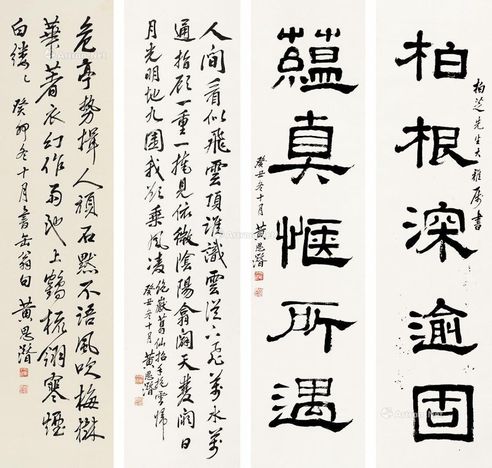 柏根深逾固
柏芝先生大雅屬書
蘊真愜所遇
癸丑冬十月 黃思潛
人間看似飛雲頂誰識雲從飛萬水萬
通指顧一重一掩見依微陰陽翕闢天日
月光明地九圍我欲乘風凌
絕巘葛仙招手挽雲歸
癸丑冬十月 黃思潛
危亭勢揖人頑石默不語風吹梅樹
華著衣幻作雨池上鶴梳翎寒煙
白縷〻 癸卯冬十月書缶翁句 黃思潛